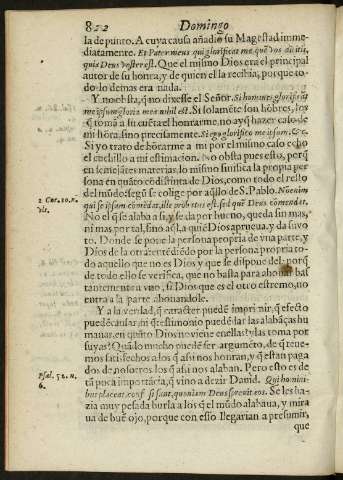 852 Domingo
la de punto. A cuya causa añadio su Magestad imme-
diatamente. Et Pater meus qui glorificat me, què vos dicitis,
quis Deus vester est. Que el mismo Dios era el principal
autor de su honra, y de quien el la recibia, porque to-
do lo demas era nada.
Y no obsta, q̃ no dixesse el Señor. Si homines glorificãt
me ipsum gloria mea nihil est. Si solamẽte son hõbres, los
q̃ toma a su cuẽta el honrarme, no ay q̃ hazer caso de
mi hõra, sino precisamente. Si ego glorifico me ipsum, &c.
Si yo trato de hõrarme a mi por el mismo caso echo
el cuchillo a mi estimacion. No obsta pues esto, porq̃
en semejãtes materias, lo mismo sinifica la propia per
sona en quãto cõdistinta de Dios, como todo el resto
del mũdo: segũ se colige por aq̃llo de S. Pablo. Nõ enim
2 Cor. 10. n.
18.
qui se ipsum comẽdat, ille probatus est, sed quẽ Deus comendat.
No el q̃ se alaba a si, y se da por bueno, queda sin mas,
ni mas por tal, sino aq̃l, a quiẽ Dios aprueua, y da su vo
to. Donde se pone la persona propria de vna parte, y
Dios de la otra: entẽdiẽdo por la persona propria to-
do aquello que no es Dios y que se dispone del: porq̃
de todo ello se verifica, que no basta para abonar bas
tantemente a vno, si Dios que es el otro estremo, no
entra a la parte abonandole.
Y a la verdad, q̃ caracter puede imprimir, q̃ efecto
puede causar, ni q̃ testimonio puedẽ dar las alabãças hu
manas, en quiẽto Dios no viene en ellas: y las toma por
suyas? Quã lo mucho puede ser argumẽto, de q̃ tene-
mos satisfechos a los q̃ assi nos honran, y q̃ estan paga
dos de nosotros los q̃ assi nos alaban. Pero esto es de
Psal. 52. n.
6.
tã poca importãcia, q̃ vino a dezir Dauid. Qui homini-
bus placent, confusi sunt, quoniam Deus spreuit eos. Se les ha-
zia muy pesada burla a los q̃ el mũdo alabaua, y mira
ua de buẽ ojo, porque con esso llegarian a presumir,
que